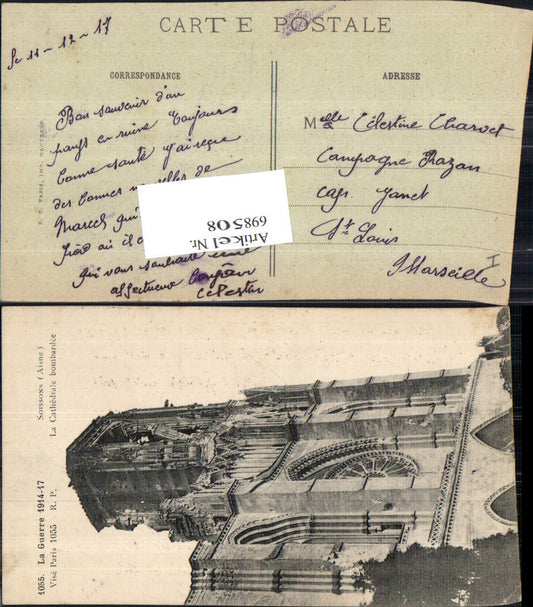 CARTE POSTALE
Le 11-12-17
CORRESPONDANCE
Bon souvenir d'un
pays en ruine Toujours
bonne santé j'ai reçu
des bonnes nouvelles de
Marcel qui
froid où il
qui vous souhaite
affectueux
Célestin
E. D. PARIS, IMP.
ADRESSE
Melle Célestine Charvet
Campagne Razan
cap. Janet
St Louis
Marseille
I
Artikel Nr.
698508
1055. La Guerre 1914-17
Visé Paris 1055 R. P.
SOISSONS (Aisne)
La Cathédrale bombardée